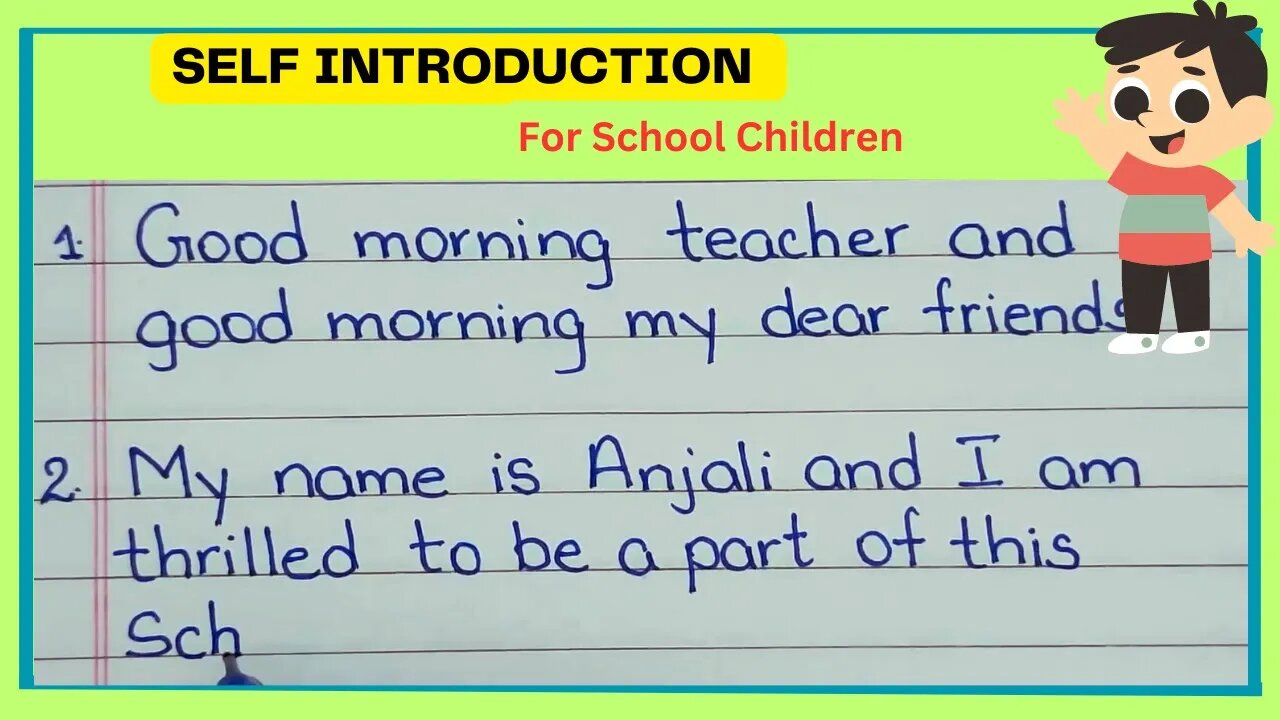 SELF INTRODUCTION
For School Children
1. Good morning teacher and
good morning my dear friends
2. My name is Anjali and I am
thrilled to be a part of this
Sch